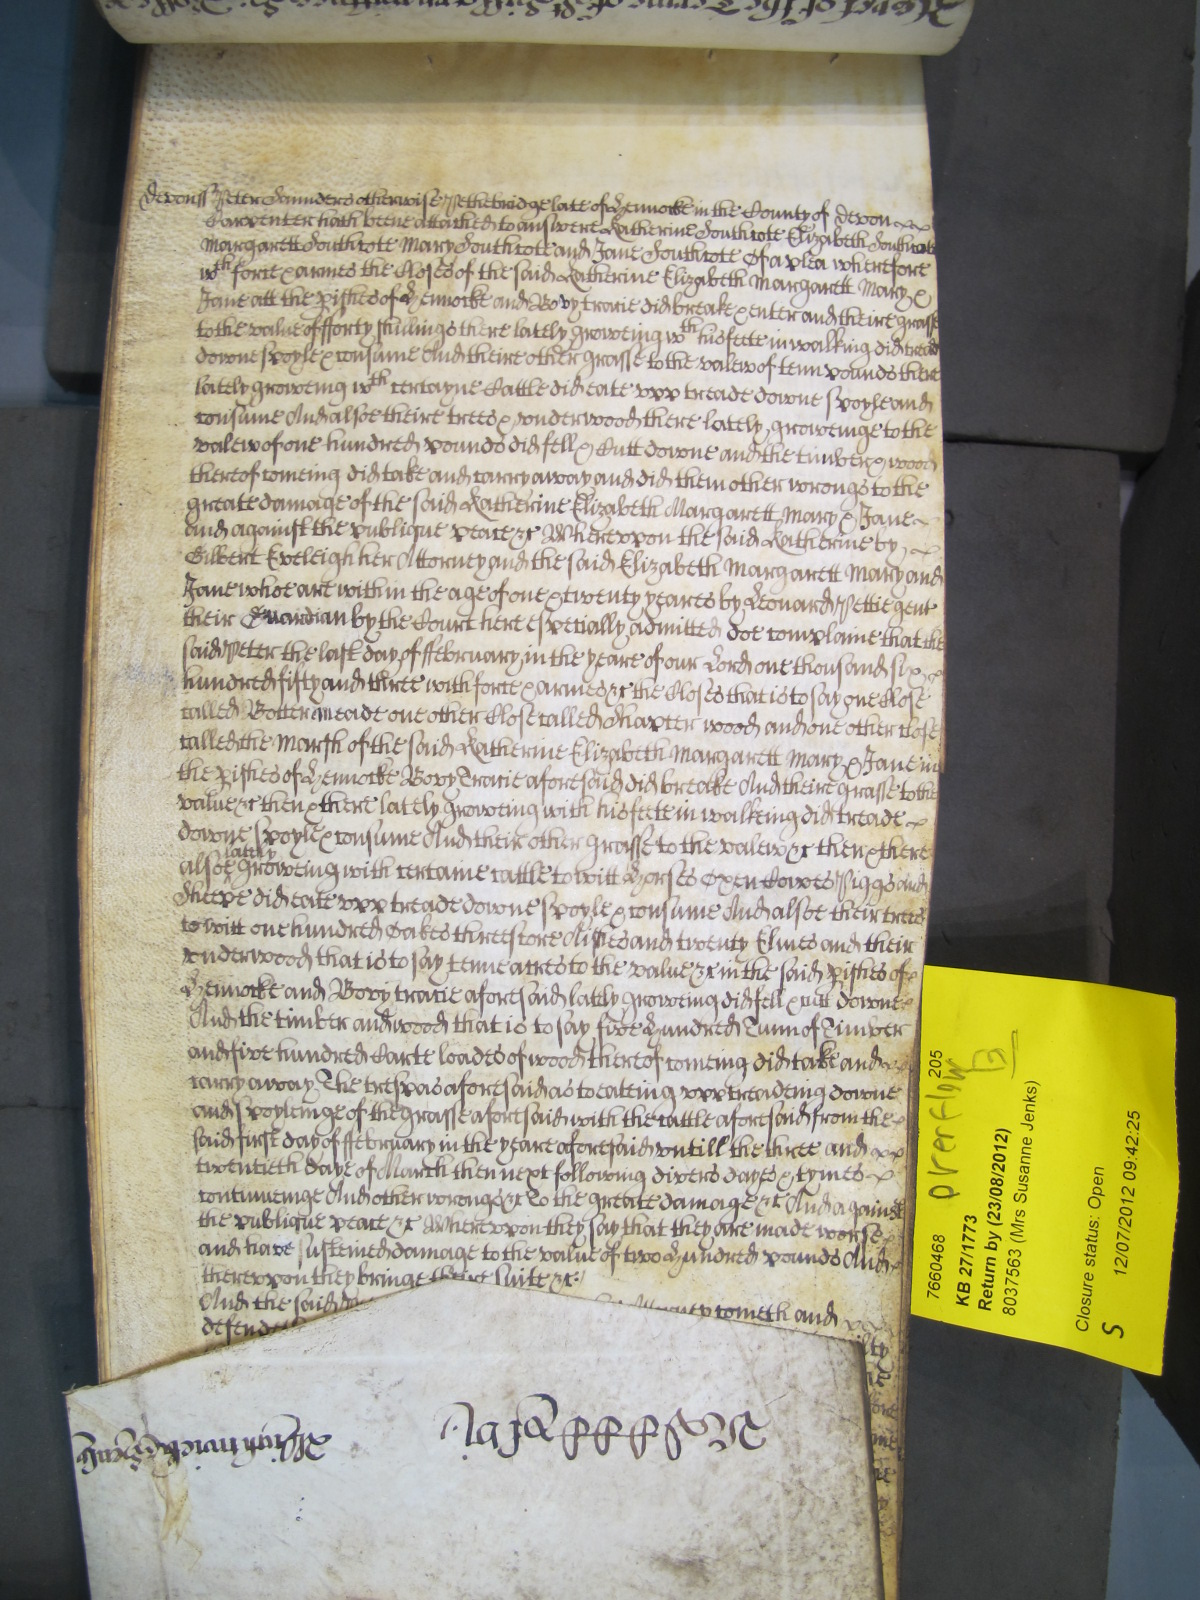 Devonss Peter Saunders otherwise Pethebridge late of Hennocke in the County of Devon
Carpenter hath beene attached to answere Katherine Southcote Elizabeth Southcote
Margarett Southcote Mary Southcote and Jane Southcote Of a plea wherefore
wth force & armes the Closes of the said Katherine Elizabeth Margarett Mary &
Jane att the pishes of Hennocke and Bovy tracie did breake & enter and theire grasse
to the value of fforty shillings there lately groweing wth his feete in walking did tread
downe spoyle & consume And theire other grasse to the valew of tenn pounds there
lately groweing wth certayne Cattle did eate upp treade downe spoyle and
consume And alsoe theire trees & underwood there lately groweinge to the
valew of one hundred pounds did fell & Cutt downe and the timber & wood
thereof comeing did take and carry away and did them other wrongs to the
greate damage of the said Katherine Elizabeth Margarett Mary & Jane
and against the publique peace &c Whereupon the said Katherine by
Gilbert Eveleigh her Attorney and the said Elizabeth Margarett Mary and
Jane whoe are within the age of one & twenty yeares by Leonard Pettie gent
their Guardian by the Court here especially admitted doe complaine that the
said Peter the last day of ffebruary in the yeare of our Lord one thousand six
hundred fifty and three with force & armes &c the Closes that is to say one Close
called Botter meade one other Close called Chapter wood and one other close
called the Marsh of the said Katherine Elizabeth Margarett Mary & Jane in
the pishes of Hennocke Bovy Tracie aforesaid did breake And theire grasse to the
value &c then & there lately groweing with his feete in walkeing did treade
downe spoyle & consume And their other grasse to the valew &c then & there
lately
alsoe groweing with certaine cattle to witt Horses Oxen Cowes Piggs and
Sheepe did eate upp treade downe spoyle & consume And alsoe their trees
to witt one hundred Oakes threescore Ashes and twenty Elmes and their
underwood that is to say tenne acres to the value &c in the said pishes of
Hennocke and Bovy tracie aforesaid lately groweing did fell & cutt downe
And the timber and wood that is to say five Hundred Tunn of Timber
and five hundred Carte loades of wood thereof comeing did take and
carry away The trespas aforesaid as to eating upp treadeing downe
and spoyleinge of the grasse aforesaid with the cattle aforesaid from the
said first day of ffebruary in the yeare aforesaid untill the three and
twentieth daye of March then next following divers dayes & tymes
continueinge And other wrongs &c To the greate damage &c And against
the publique peace &c Whereupon they say that they are made worse
and have susteined damage to the value of two Hundred pounds And
thereupon they bringe theire suite &c
And the said Attorney cometh and
7660468 Overflow 205
KB 27/1773
Return by (23/08/2012)
8037563 (Mrs Susanne Jenks)
Closure status: Open
S 12/07/2012 09:42:25